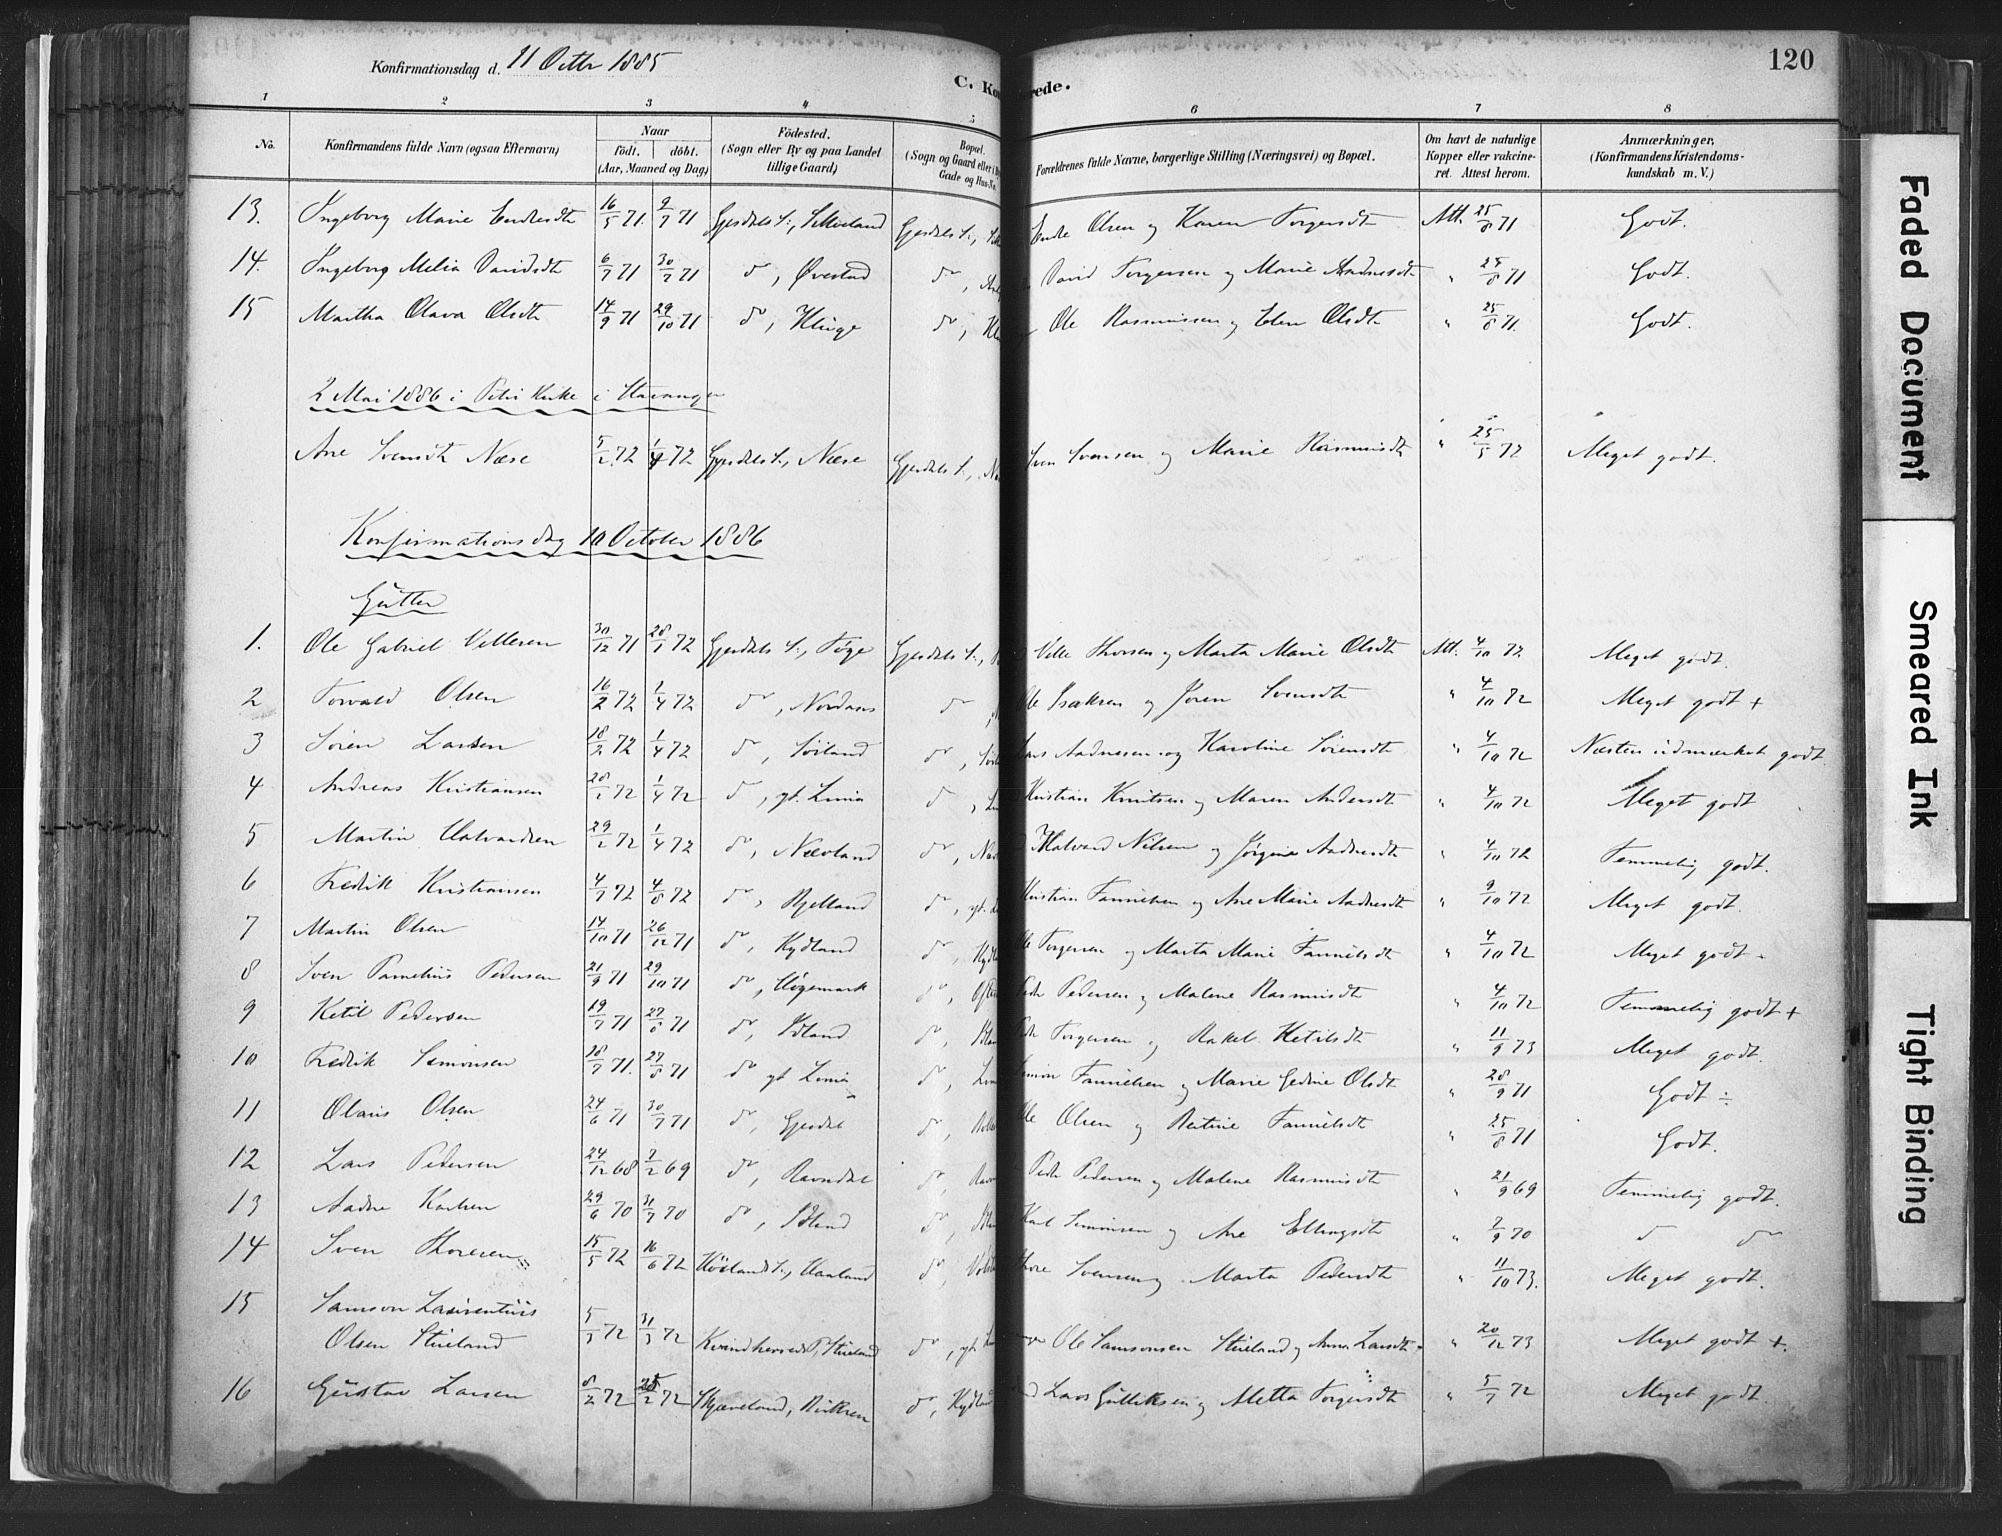 Konfirmationsdag d. 11 Octbr 1885
120
C. Kon rede.
1 2 3 4 5 6 7 8
No. Konfirmandens fulde Navn (ogsaa Efternavn) Naar födt. döbt. (Aar, Maaned og Dag) Födested. (Sogn eller By og paa Landet tillige Gaard) Bopæl. (Sogn og Gaard eller Gade og Hus-No. Forældrenes fulde Navne, borgerlige Stilling (Næringsvei) og Bopæl. Om havt de naturlige Kopper eller vakcineret. Attest herom. Anmærkninger. (Konfirmandens Kristendomskundskab m. V.)
13. Ingeborg Marie Endresdt 16/5 71 9/7 71 Gjesdals S:, Gjesdals S:, Endre Olsen og Karen Torgersdt Att. 25/8 71 Godt.
14. Ingeborg Melia Davidsdt 6/7 71 30/7 71 do, Øvestad do, David Torgersen og Marie Aadnesdt " 25/8 71 Godt.
15 Martha Olava Olsdt 14/9 71 29/10 71 do, Kluge do, Ole Rasmussen og Elen Olsdt " 25/8 71. Godt.
2 Mai 1886 i Petri Kirke i Stavanger
Ane Svensdt Næse 5/2 72 1/4 72 Gjesdals S:, Næse Gjesdals S:, Sven Svensen og Marie Rasmusdt " 25/5 72 Meget godt.
Konfirmationsdag 10 October 1886
Gutter
1. Ole Gabriel Villesen 30/12 71 28/1 72 Gjesdals S:, Tøge Gjesdals S:, Ville Thorsen og Marta Marie Olsdt Att. 4/10 72 Meget godt.
2 Torvald Olsen 16/2 72 1/4 72 do, Nordaas do Ole Isaksen og Joren Svensdt " 4/10 72 Meget godt +
3 Sören Larsen 18/2 72 1/4 72 do, Söiland do, Lars Aadnesen og Karoline Sörensdt " 4/10 72 Næsten udmærket godt.
4 Andreas Kristiansen 28/1 72 1/4 72 do, yt. Lima do, Kristian Knutsen og Maren Andersdt " 4/10 72 Meget godt
5 Martin Halvardsen 29/2 72 1/4 72 do, Nævland do, Halvard Nilsen og Jørgine Aadnesdt " 4/10 72 Temmelig godt.
6 Fredrik Kristiansen 4/7 72 4/8 72 do, Mjelland do, yt. Kristian Tønnesen og Ane Marie Aadnesdt " 9/10 72 Meget godt.
7 Martin Olsen 14/10 71 26/12 71 do, Kydland do, Ole Torgersen og Marta Marie " 4/10 72 Meget godt -
8 Sven Pedersen 21/9 71 29/10 71 do, Høgemark do, Pedr Pedersen og Malene Rasmusdt " 4/10 72 Temmelig godt +
9 Ketil Pedersen 19/7 71 27/8 71 do, do, Pedr Torgersen og Rakel Ketilsdt " 11/9 73 Meget godt.
10 Fredrik Simonsen 18/7 71. 27/8 71 do yt Limia do, Simon og Marie Gedine Olsdt " 28/9 71 Godt ÷
11 Olaus Olsen 24/6 71 30/7 71 do, Gjesdal do, Ole Olsen og " 25/8 71 Godt.
12 Lars Pedersen 24/12 68 7/2 69 do, Ravndal do, Pedr Pedersen og Malene Rasmusdt " 21/9 69 Temmelig godt.
13 Aadne Karlsen 29/6 70 31/7 70 do, do, Karl Simonsen og Ane Ellingsdt " 7/9 70 do do
14 Sven Thoresen 15/5 72 16/6 72 Høilands S:, Haaland do, Thore Svensen og Marta Pedersdt " 11/10 73. Meget godt.
15 Samson Laurentius
Olsen Stueland 5/3 72 31/3 72 Kvindherreds P, Stueland do, yt. Ole Samsonsen Stueland og Anna Larsdt " 20/12 73 Meget godt +.
16 Gustav Larsen 8/2 72 /2 72 Skjæveland, do, Kydland Lars Gulliksen og Metta Torgersdt " 5/7 72 Meget godt.
Faded Document
Smeared Ink
Tight Binding